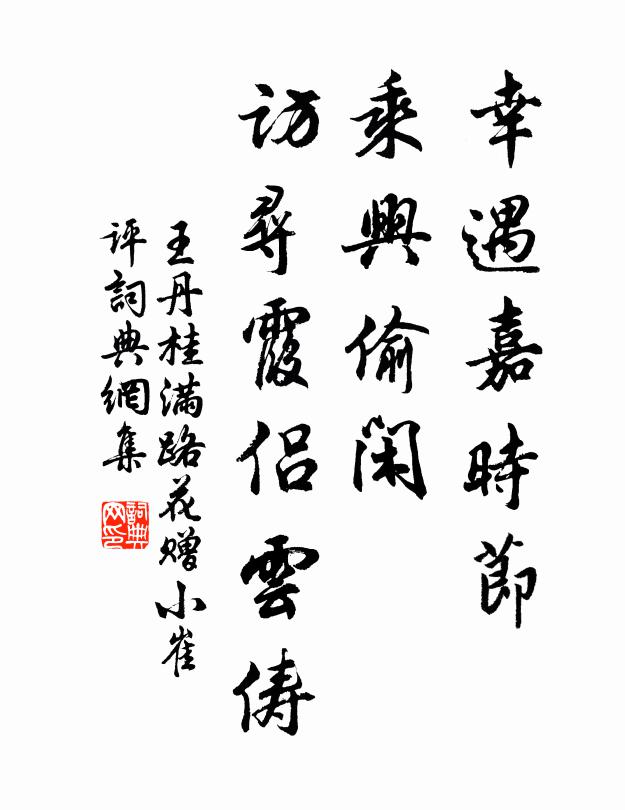 幸遇嘉時節
乘興偷閑
訪尋霞侶雲儔
王丹桂滿路花贈小崔
评詞典網集
詞典網印